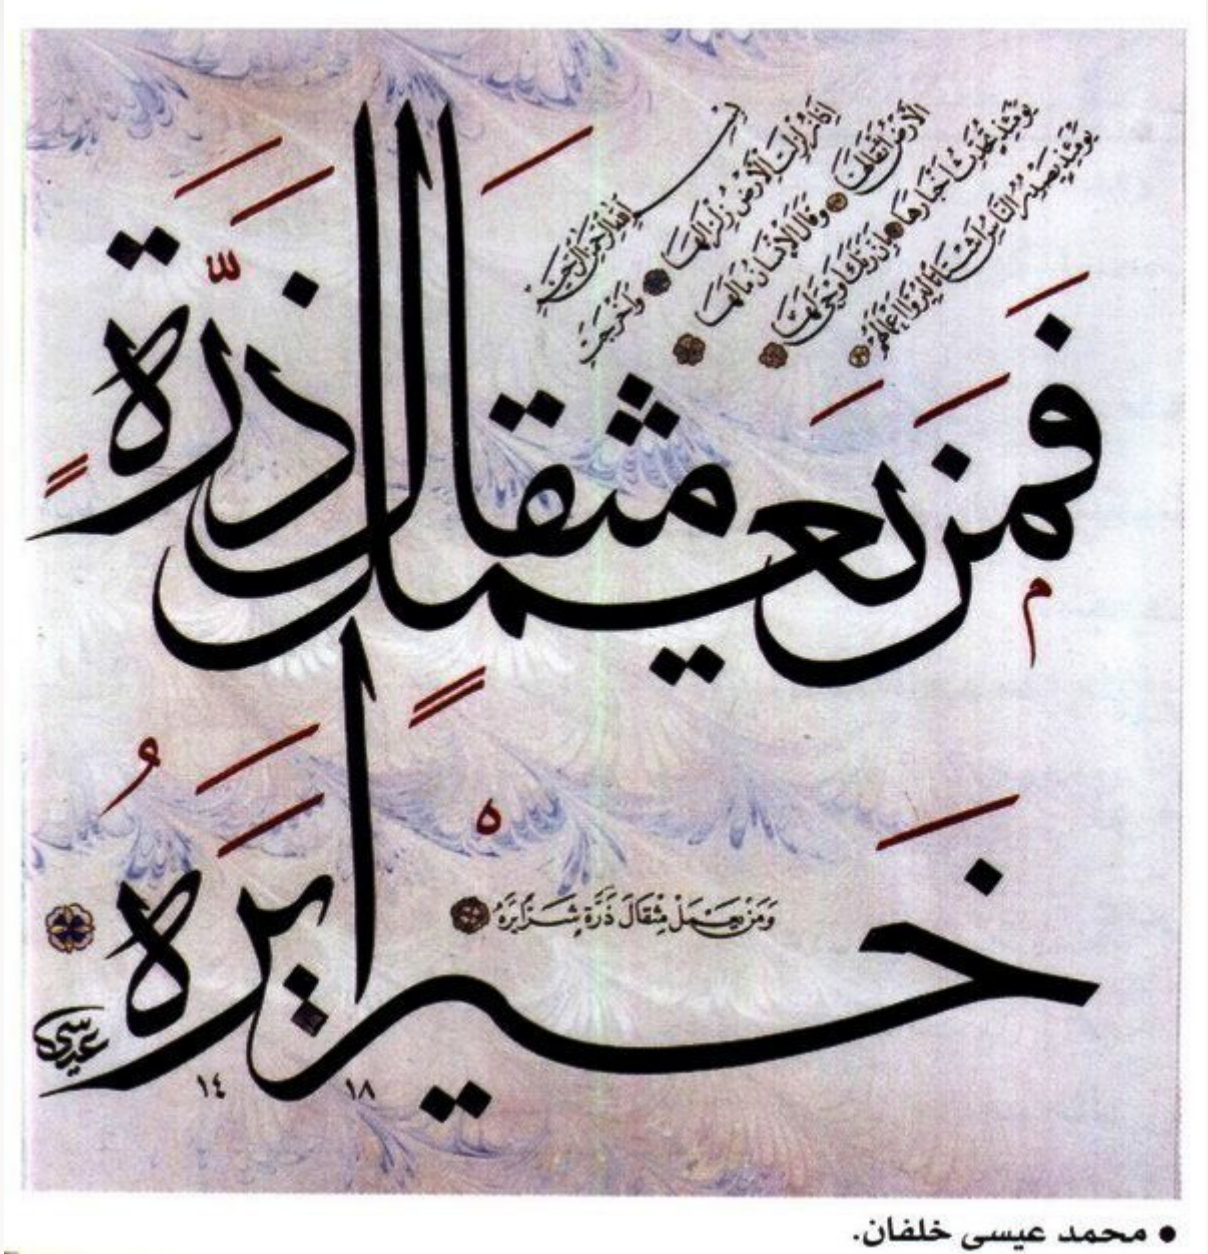 بسم الله الرحمن الرحيم
إذا زلزلت الأرض زلزالها وأخرجت
الأرض أثقالها وقال الإنسان مالها
يومئذ تحدث أخبارها بأن ربك أوحى لها
يومئذ يصدر الناس أشتاتا ليروا أعمالهم
فمن يعمل مثقال ذرة
خيرا يره
ومن يعمل مثقال ذرة شرا يره
عيسى
١٤ ١٨
• محمد عيسى خلفان.